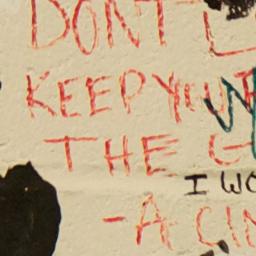 DON'T
KEEP YOU
THE
I WO
-A